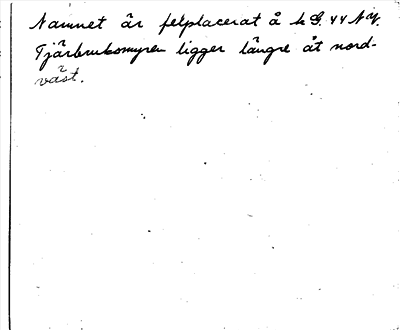 Namnet är felplacerat å k G. 44 NY.
Tjärbruksmyren ligger längre åt nord-
väst.